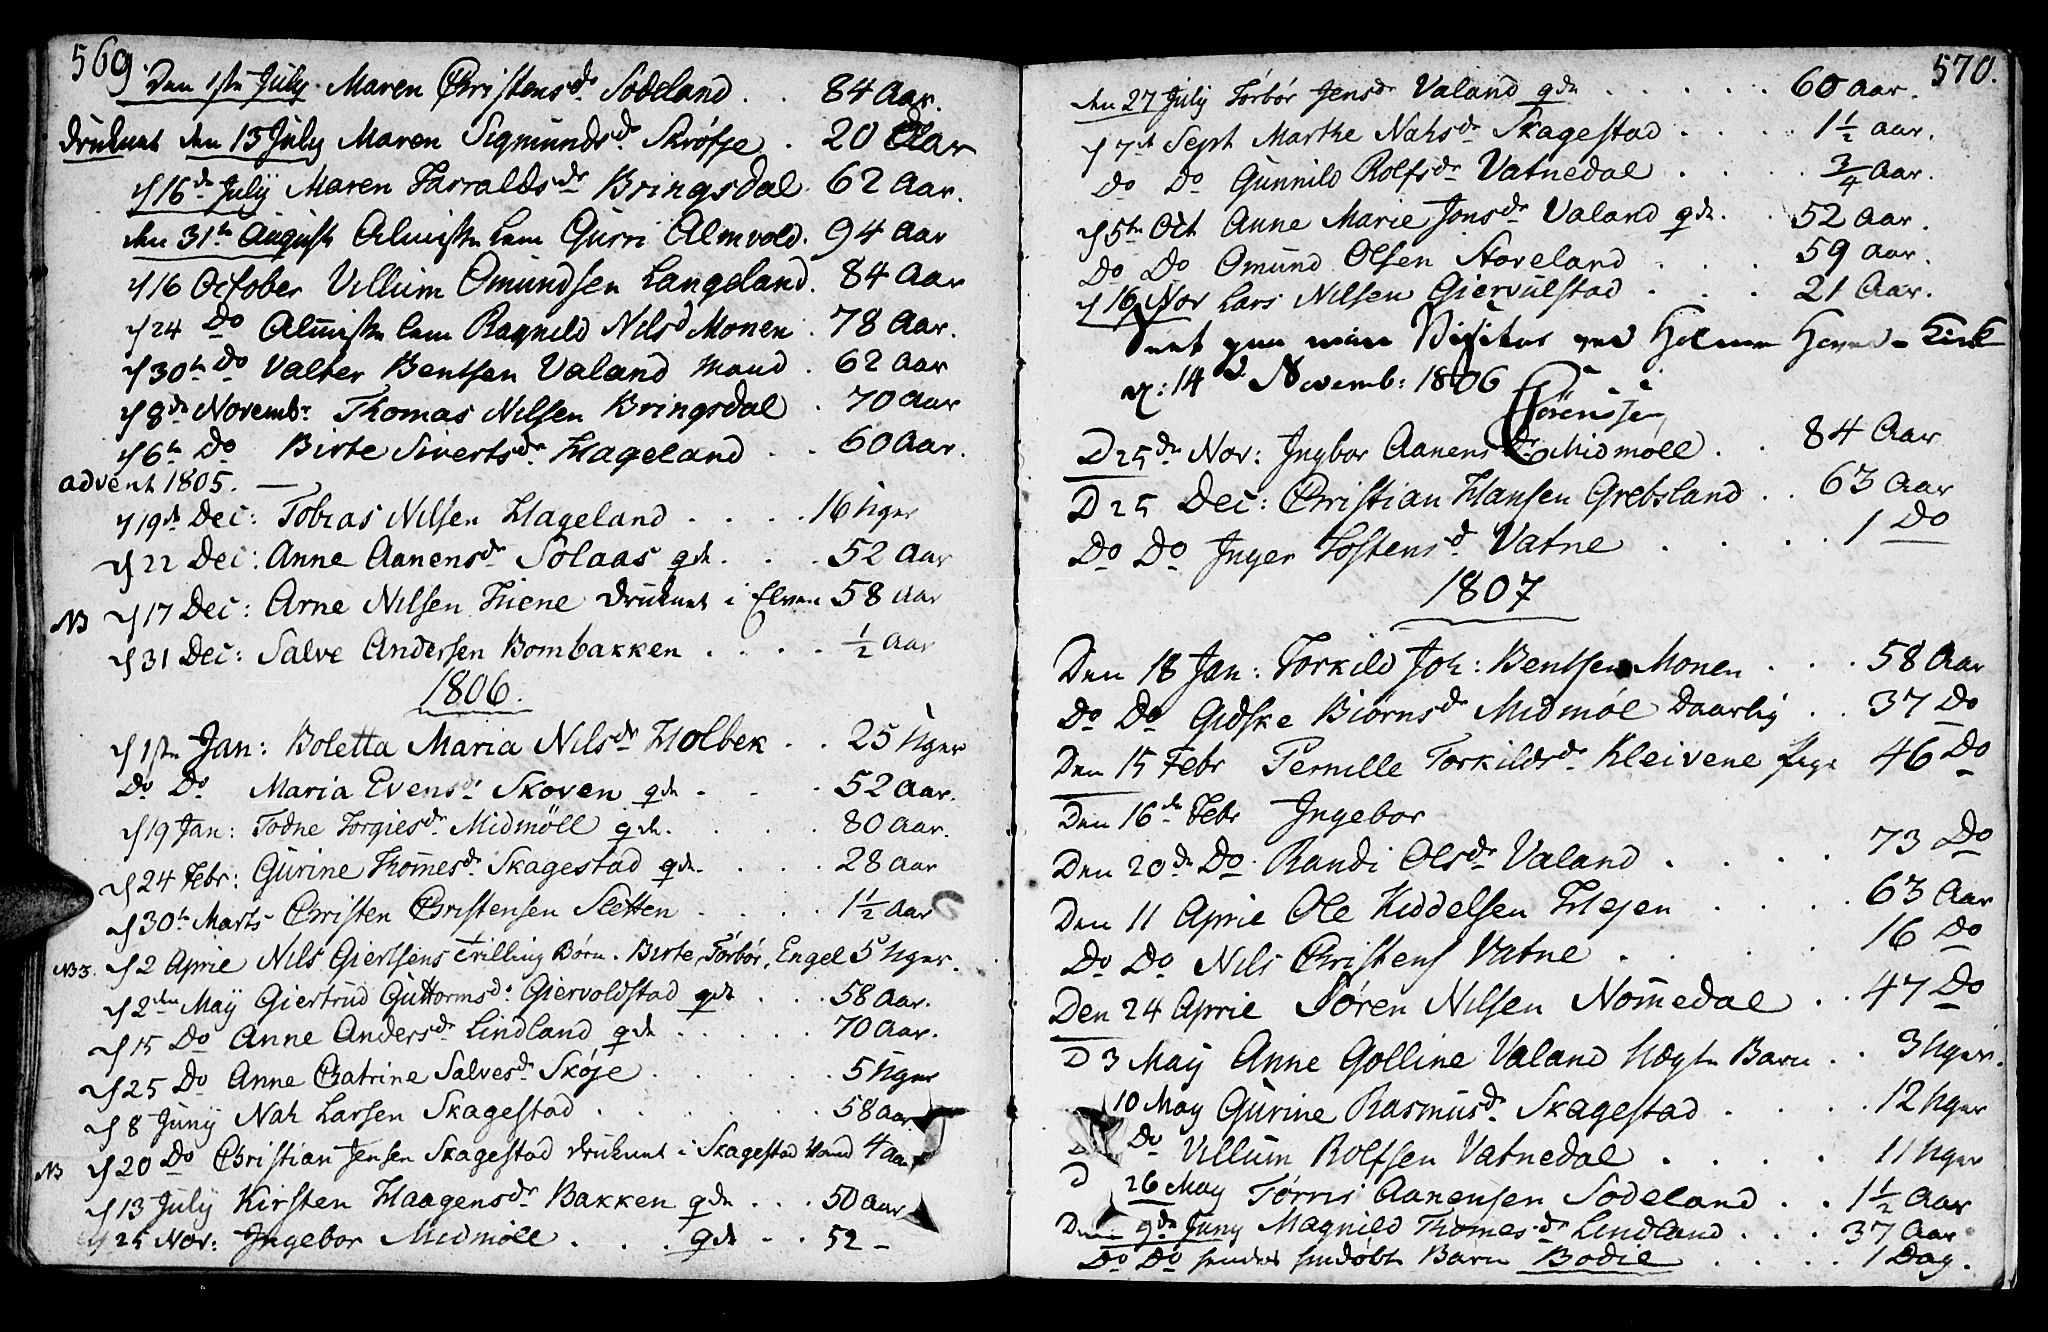 569.
Den 1ste July Maren Christensdr Sodeland . . 84 Aar.
druknet den 15 July Maren Sigmundsdr. Skrøfse . 20 Aar
d 16de July Maren Harraldsdr Bringsdal 62 Aar.
den 31te August Almiste Lem Gurri Almvold. 94 Aar
d 16 October Villum Omundsen Langeland. 84 Aar
d 24 Do Almiste Lem Ragnild Nilsd Monen . 78 Aar.
d 30te Do Valter Bentsen Valand Mand . 62 Aar
d 8de Novembr Thomas Nilsen Bringsdal . 70 Aar
d 6te Do Birte Sivertsdr. Hageland . . 60 Aar.
advent 1805. —
d 19de Dec: Tobias Nilsen Hageland . . . . 16 Uger
d 22 Dec: Anne Aanensdr Solaas gde . . . 52 Aar
NB d 17 Dec: Arne Nilsen Tiene druknet i Elven 58 Aar
d 31 Dec: Salve Andersen Bombakken . . . . ½ Aar
1806.
d 1ste Jan: Boletta Maria Nilsdr Holbek . . 25 Uger
Do Do Maria Evensdr Skoven gde . . . 52 Aar.
d 19 Jan: Todne Torgiesdr Midmöll gde. . . . 80 Aar.
d 24 Febr: Gurine Thomesdr Skagestad gde. . . . 28 Aar
d 30te Marts Christen Christensen Sletten . . . . 1½ Aar
NB 3. d 2 Aprie Nils Giertsens Trilling Børn. Birte, Torbør, Engel 5 Uger.
d 2den May Giertrud Guttormsdr. Giervoldstad gde . . . 58 Aar.
d 15 Do Anne Andersdr Lindland gde . . . . . 70 Aar.
d 25 Do Anne Catrine Salvesdr Skøje . . . . . 5 Uger
d 8 Juny Nah Larsen Skagestad . . . . . . 58 Aar
NB d 20 Do Christian Jensen Skagestad druknet i Skagestad Vand 4 Aar
d 13 July Kirsten Haagensdr Bakken gde . . . 50 Aar
d 25 Nov: Ingebor Midmöll . . . gde . . 52 –
570.
den 27 July Torbør Jensdr Valand gde . . . . . 60 Aar.
d 7de Sept Marthe Nahsdr Skagestad . . . . 1½ Aar.
Do Do Gunnild Rolfsdr Vatnedal . . . . ¾ Aar.
d 5te Oct Anne Marie Jonsdr Valand gde. . 52 Aar.
Do Do Omund Olsen Storeland . . . 59 Aar.
d 16 Nov Lars Nilsen Giervulstad . . . 21 Aar.
Seet paa min Visitas ved Holme Hoved-Kirk
d: 14 d Novemb: 1806
Sörensen
D 25de Nov: Ingbor Aanensdr Midmöll . . 84 Aar
D 25 Dec: Christian Hansen Grebsland . . 63 Aar
Do Do Inger Tostensdr Vatne . . . . 1 Do
1807
Den 18 Jan: Torkild Joh: Bentsen Monen . . . 58 Aar
Do Do Gidske Biørnsdr Midmøl Daarlig . . 37 Do
Den 15 Febr Pernille Torkildsdr. Kleivene Pige 46 Do
Den 16de Febr Ingebor
Den 20de Do. Randi Olsdr Valand . . . . . 73 Do
Den 11 Aprie Ole Kiddelsen Hejen . . . . 63 Aar
Do Do Nils Christens Vatne . . . . . 16 Do
Den 24 Aprie Sören Nilsen Nomedal . . 47 Do
D 3 May Anne Golline Valand Uægte Barn . . 3 Uger.
10 May Gurine Rasmusdr. Skagestad . . . . 12 Uger
D Do Villum Rolfsen Vatnedal . . . . . 11 Uger
D 26 May Torris Aanensen Sodeland . . 1½ Aar
Den 9de Juny Magnild Thomesdr Lindland . . . 37 Aar
Do Do hendes hiedøbte Barn Bodil . . . . 1 Dag.